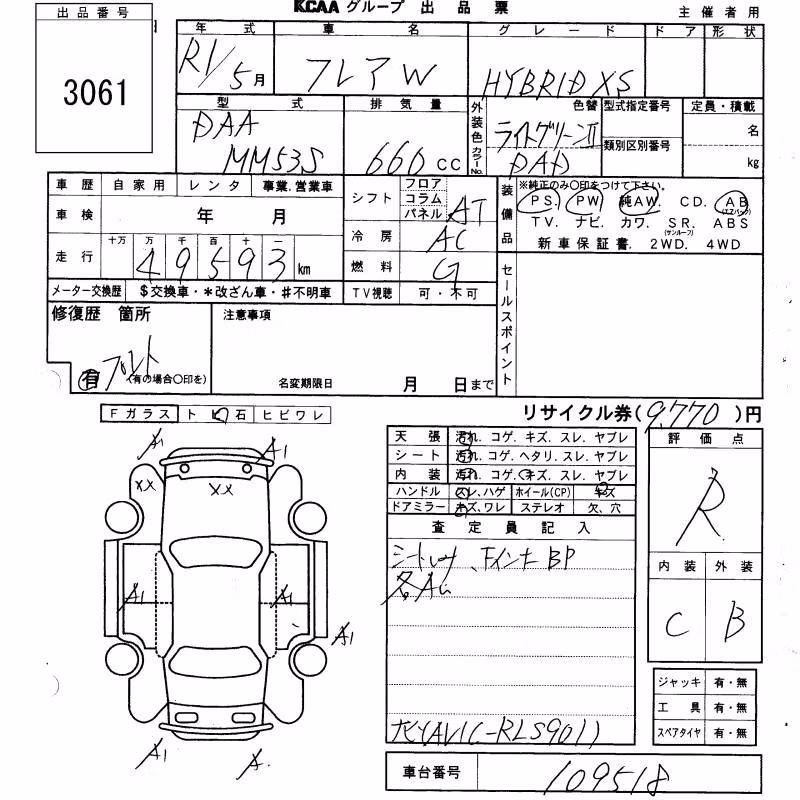 出品番号
3061
KCAA グループ 出品票
主催者用
年式 車名 グレード ドア 形状
R1/5月 フレアW HYBRID XS
型式 排気量 外装色 カラーNo. 色替 型式指定番号 定員・積載
DAA
MM53S 660CC ライトグリーンⅡ
DAD 類別区別番号 名
kg
車歴 自家用 レンタ 事業.営業車
車検 年 月
走行 十万 万 千 百 十 一
49593km
シフト フロア コラム パネル AT
冷房 AC
燃料 G
装備品 ※純正のみ〇印をつけて下さい。
PS. PW 純AW. CD. AB (エアバック)
TV. ナビ. カワ. SR. (サンルーフ) ABS
新車保証書. 2WD. 4WD
メーター交換歴 $交換車・*改ざん車・#不明車 TV視聴 可・不可
セールスポイント
修復歴 箇所 注意事項
有 フロント
(有の場合〇印を) 名変期限日 月 日まで
リサイクル券(9,770)円
Fガラス トビ石 ヒビワレ
天張 汚れ. コゲ. キズ. スレ. ヤブレ
シート 汚れ. コゲ. ヘタリ. スレ. ヤブレ
内装 汚れ. コゲ. キズ. スレ. ヤブレ
ハンドル スレ.ハゲ ホイール(CP) キズ
ドアミラー キズ.ワレ ステレオ 欠、穴
評価点
R
査定員記入
Fインナー BP
各A
内装 外装
C B
A1 A1
XX XX
A1 A1 A1
A1 A
ジャッキ 有・無
工具 有・無
スペアタイヤ 有・無
車台番号 109518